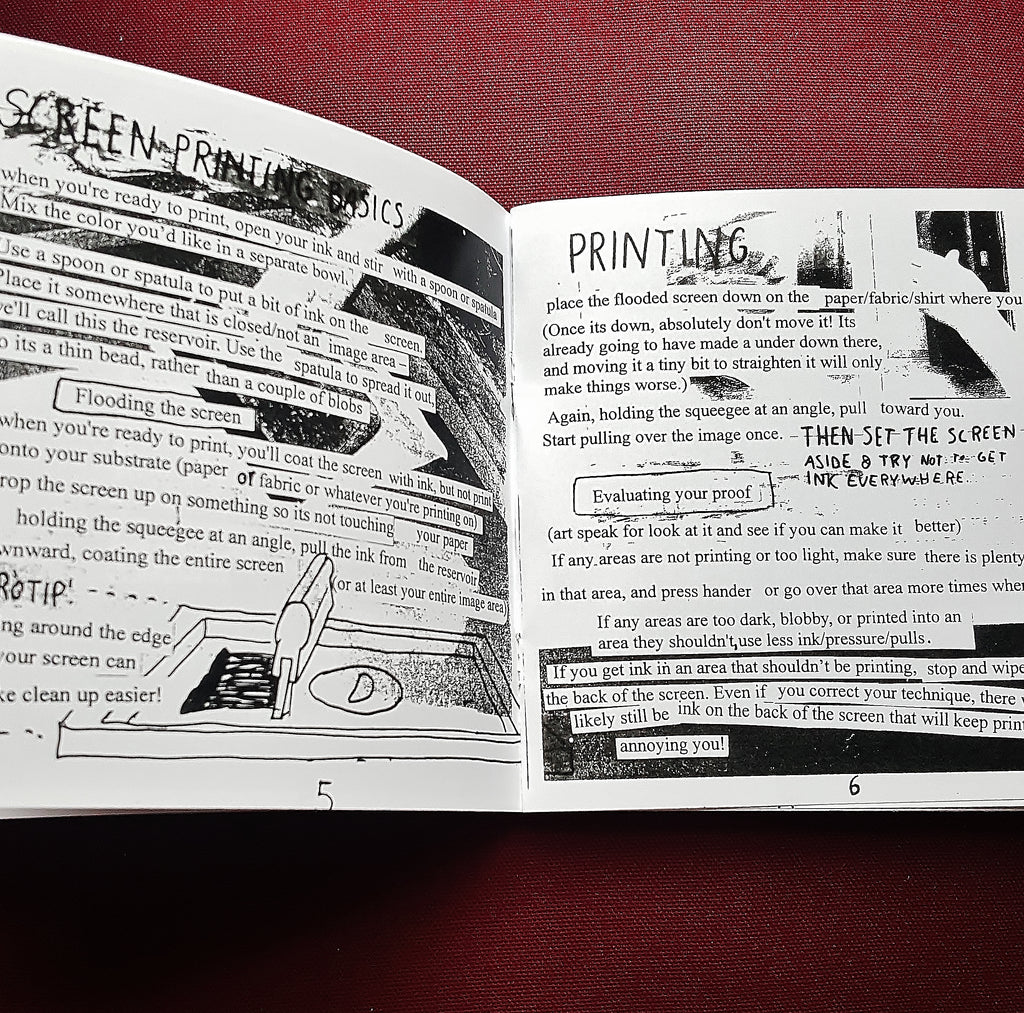 SCREEN PRINTING BASICS
when you're ready to print, open your ink and stir with a spoon or spatula
Mix the color you'd like in a separate bowl.
Use a spoon or spatula to put a bit of ink on the screen.
Place it somewhere that is closed/not an image area –
we'll call this the reservoir. Use the spatula to spread it out,
so its a thin bead, rather than a couple of blobs
Flooding the screen
when you're ready to print, you'll coat the screen with ink, but not print
onto your substrate (paper or fabric or whatever you're printing on)
rop the screen up on something so its not touching your paper
holding the squeegee at an angle, pull the ink from the reservoir
wnward, coating the entire screen (or at least your entire image area)
ROTIP!
ng around the edge
your screen can
ke clean up easier!
5
PRINTING
place the flooded screen down on the paper/fabric/shirt where you
(Once its down, absolutely don't move it! Its
already going to have made a under down there,
and moving it a tiny bit to straighten it will only
make things worse.)
Again, holding the squeegee at an angle, pull toward you.
Start pulling over the image once. – THEN SET THE SCREEN
ASIDE & TRY NOT TO GET
INK EVERYWHERE.
Evaluating your proof
(art speak for look at it and see if you can make it better)
If any areas are not printing or too light, make sure there is plenty
in that area, and press hander or go over that area more times when
If any areas are too dark, blobby, or printed into an
area they shouldn't, use less ink/pressure/pulls.
If you get ink in an area that shouldn't be printing, stop and wipe
the back of the screen. Even if you correct your technique, there
likely still be ink on the back of the screen that will keep prin
annoying you!
6